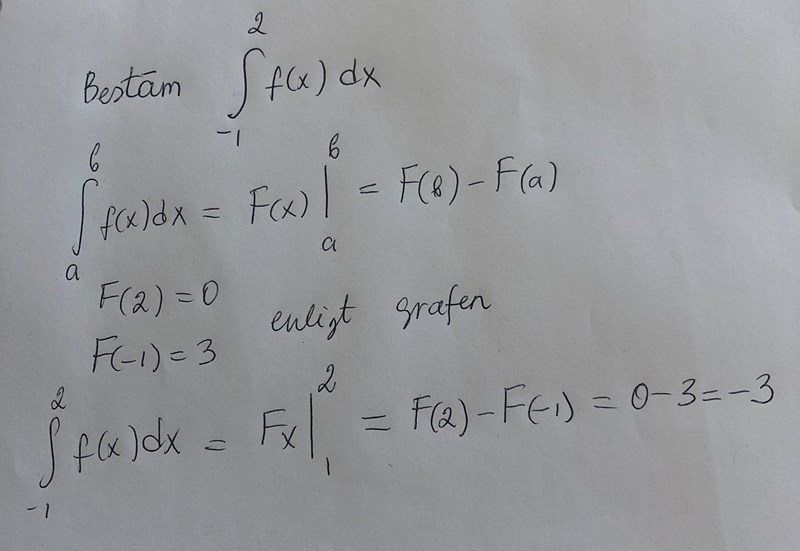 Bestäm ∫₋₁² f(x) dx
∫ₐᵇ f(x)dx = F(x) |ₐᵇ = F(b) - F(a)
F(2) = 0
enligt grafen
F(-1) = 3
∫₋₁² f(x)dx = Fx|₁² = F(2) - F(-1) = 0-3 = -3